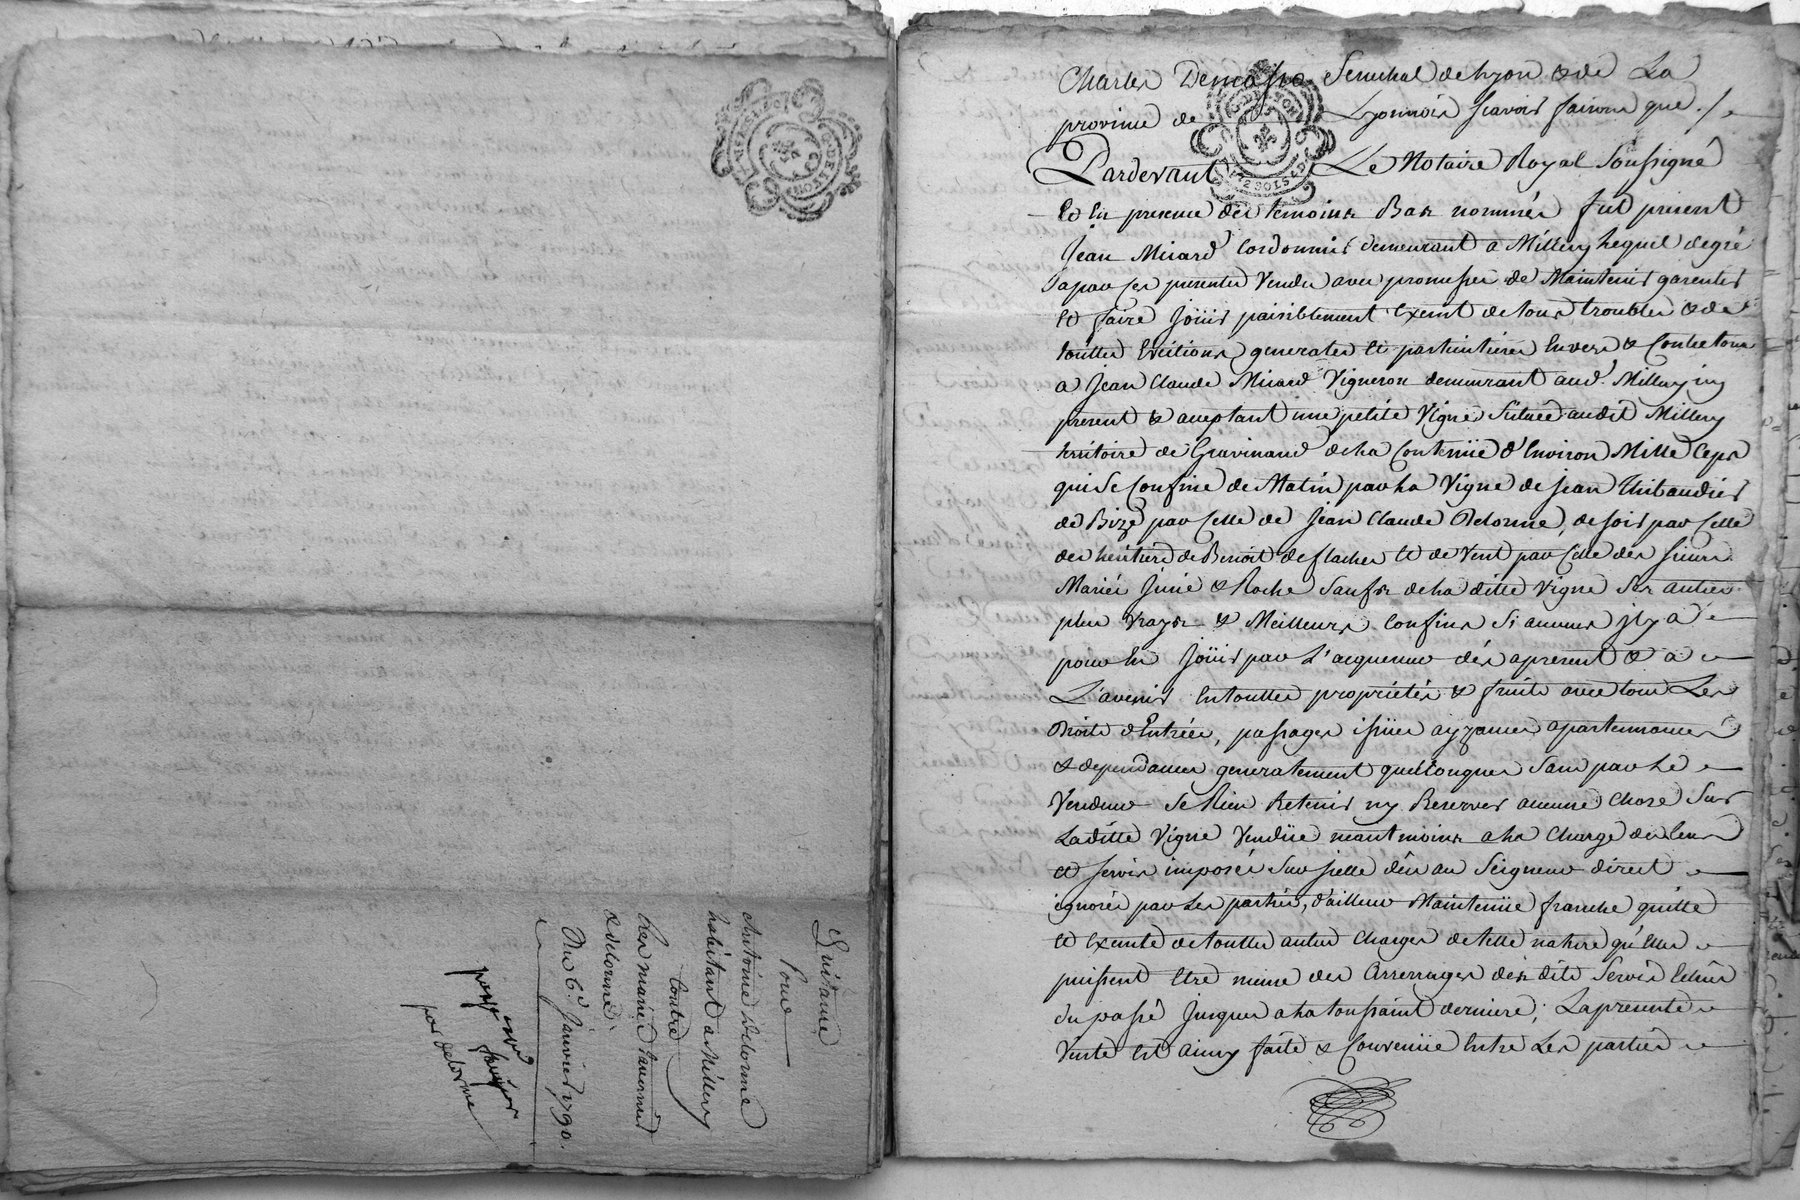 Quittance
Pour
Antoine Delorme
habitant a Millery
Contre
Les mariés
& delorme
Du 6e. Janvier 1790.
par delorme
Charles Demasso Senechal de Lyon & de La
province de Lyonnois scavoir faisons que ./.
Pardevant Le Notaire Royal Soussigné
Et En presence des temoins Bas nommés fut present
Jean Micard Cordonnier demeurant a Millery Lequel de gré
a par ces presentes Vendu avec promesse de Maintenir garentir
Et faire Joüir paisiblement Exemt de tous troubles & de
touttes Evictions generales Et particulieres Envers & Contre tous
a Jean Claude Micard Vigneron demeurant aud. Millery icy
present & aceptant une petite Vigne Située audit Millery
territoire de Gravinand de La Contenüe d'Environ Mille Ceps
qui Se Confine de Matin par La Vigne de Jean Thibaudier
de Bize par Celle de Jean Claude Delorme, de soir par Celle
des heritiers de Benoit deflaches Et de Vent par Celle des sieurs
Mariés & Roche Saufs de La ditte Vigne Ses autres
plus Vrays & Meilleurs Confins Si aucuns jl y a
pour En Joüir par L'acquereur dès apresent & a
L'avenir En touttes proprietés & fruits avec tous Les
Droits d'Entrée, passages issües ayzances apartenances
& dependances generalement quelconques Sans par Le
Vendeur Se Rien Retenir ny Reserver aucune Chose Sur
Laditte Vigne Vendüe neantmoins a La Charge du Cens
et servis imposés Sur jcelle deu au Seigneur direct
ignoré par Les parties, d'ailleur Maintenüe franche quitte
et Exemte de touttes autres Charges de telle nature qu'Elles
puissent Etre meme des Arrerages des dits Servis Echus
du passé Jusques a La toussaint derniere; La presente
Vente Est Ainsy faite & Convenüe Entre Les parties